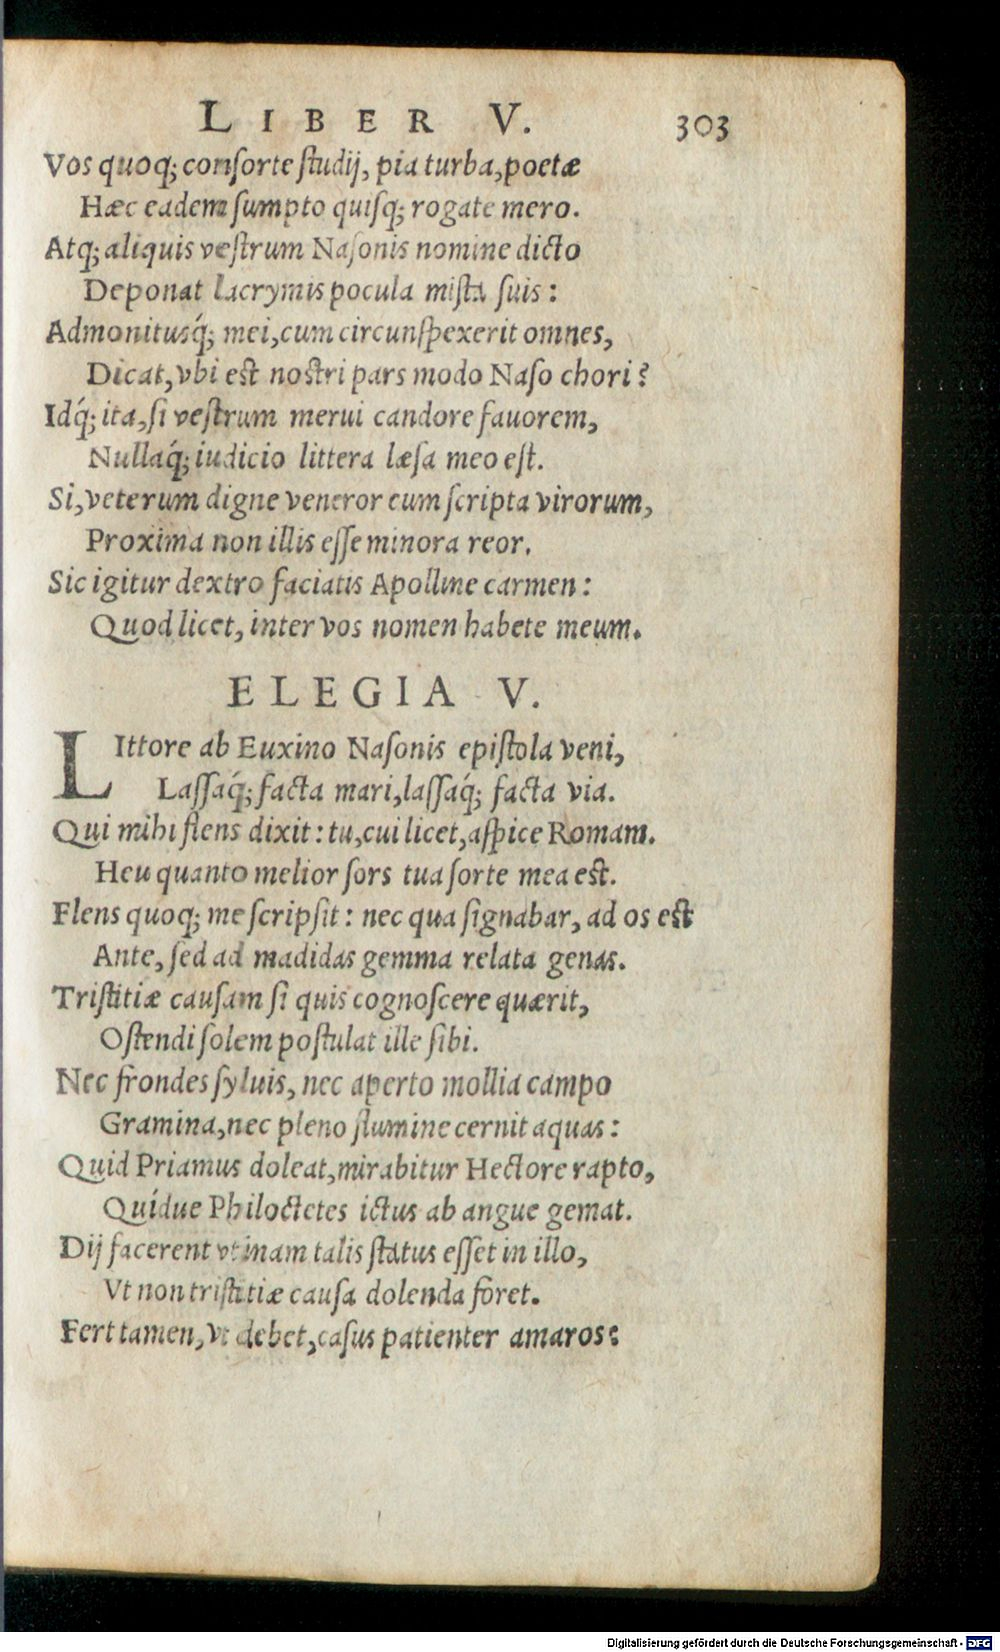 LIBER V. 303
Vos quoq; conſorte ſtudij, pia turba, poetæ
Hæc eadem ſumpto quiſq; rogate mero.
Atq; aliquis veſtrum Naſonis nomine dicto
Deponat lacrymis pocula miſta ſuis:
Admonitusq́; mei, cum circunſpexerit omnes,
Dicat, vbi est nostri pars modo Naſo chori?
Idq́; ita, ſi veſtrum merui candore fauorem,
Nullaq́; iudicio littera læſa meo eſt.
Si, veterum digne veneror cum ſcripta virorum,
Proxima non illis eſſe minora reor.
Sic igitur dextro faciatis Apolline carmen:
Quod licet, inter vos nomen habete meum.
ELEGIA V.
LIttore ab Euxino Naſonis epiſtola veni,
Laſſaq́; facta mari, laſſaq́; facta via.
Qui mihi flens dixit: tu, cui licet, aſpice Romam.
Heu quanto melior ſors tua ſorte mea est.
Flens quoq; me ſcripſit: nec qua ſignabar, ad os est
Ante, ſed ad madidas gemma relata genas.
Triſtitiæ cauſam ſi quis cognoſcere quærit,
Oſtendi ſolem poſtulat ille ſibi.
Nec frondes ſyluis, nec aperto mollia campo
Gramina, nec pleno flumine cernit aquas:
Quid Priamus doleat, mirabitur Hectore rapto,
Quídue Philoctetes ictus ab angue gemat.
Dij facerent vtinam talis ſtatus eſſet in illo,
Vt non triſtitiæ cauſa dolenda foret.
Fert tamen, vt debet, caſus patienter amaros:
Digitalisierung gefördert durch die Deutsche Forschungsgemeinschaft - DFG